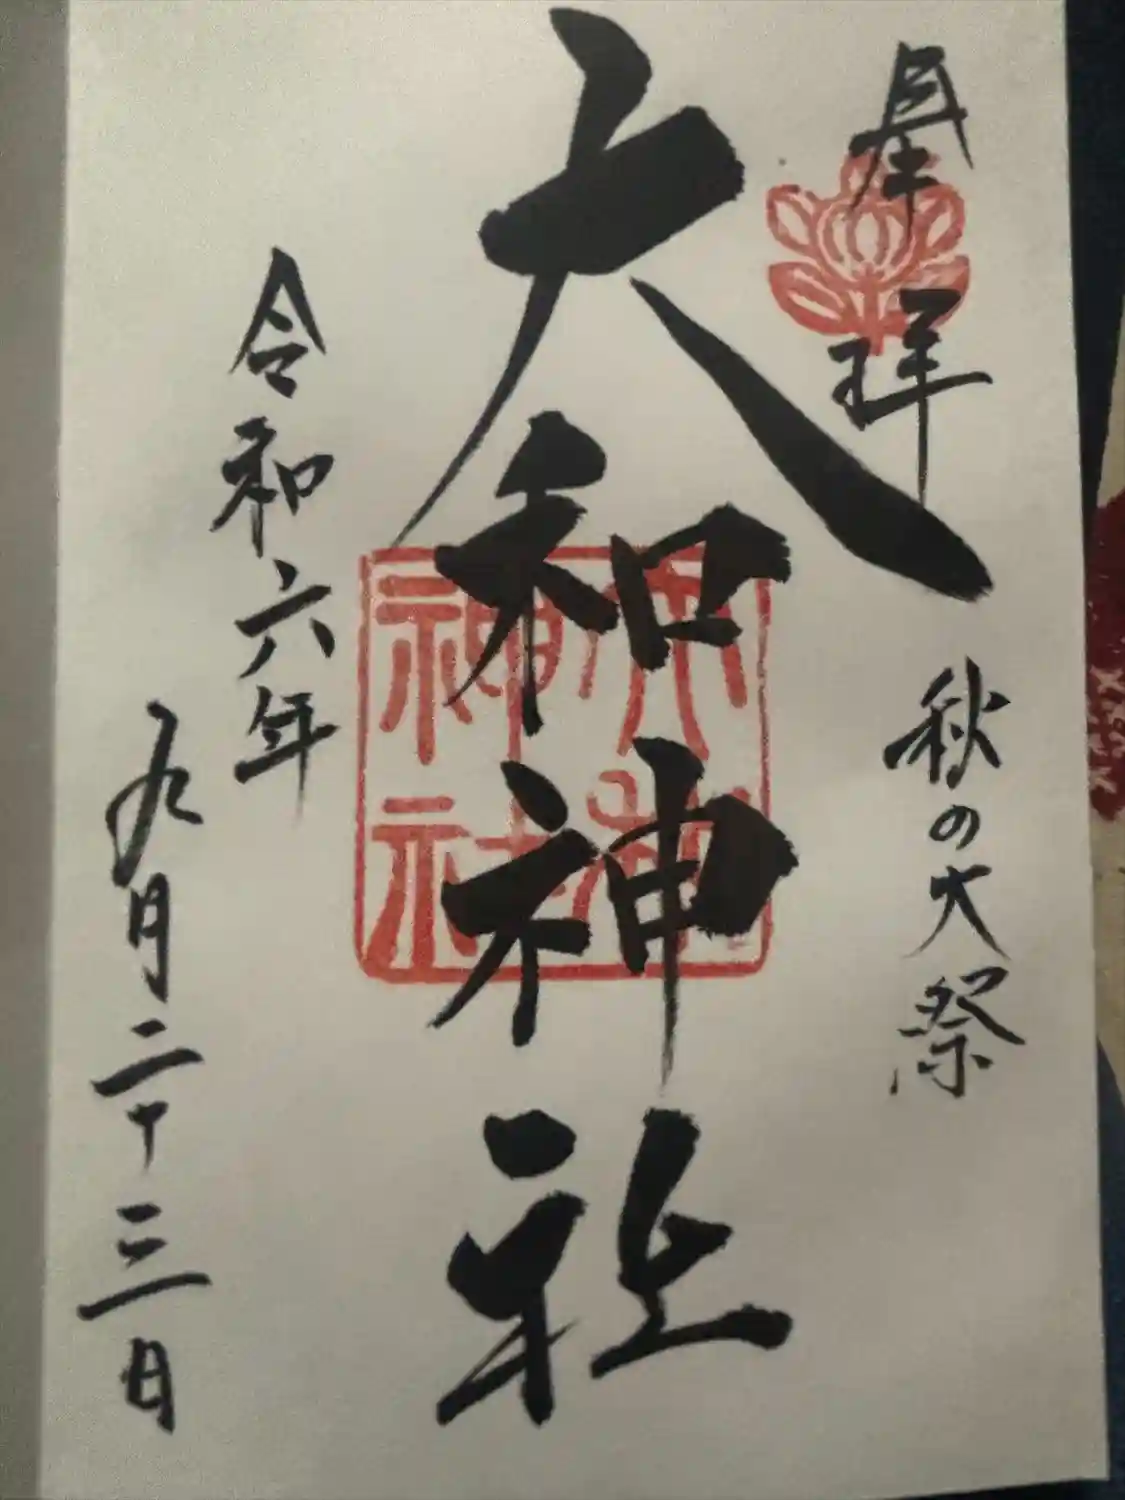 奉拝
秋の大祭
大和神社
大和神社
令和六年
九月二十三日